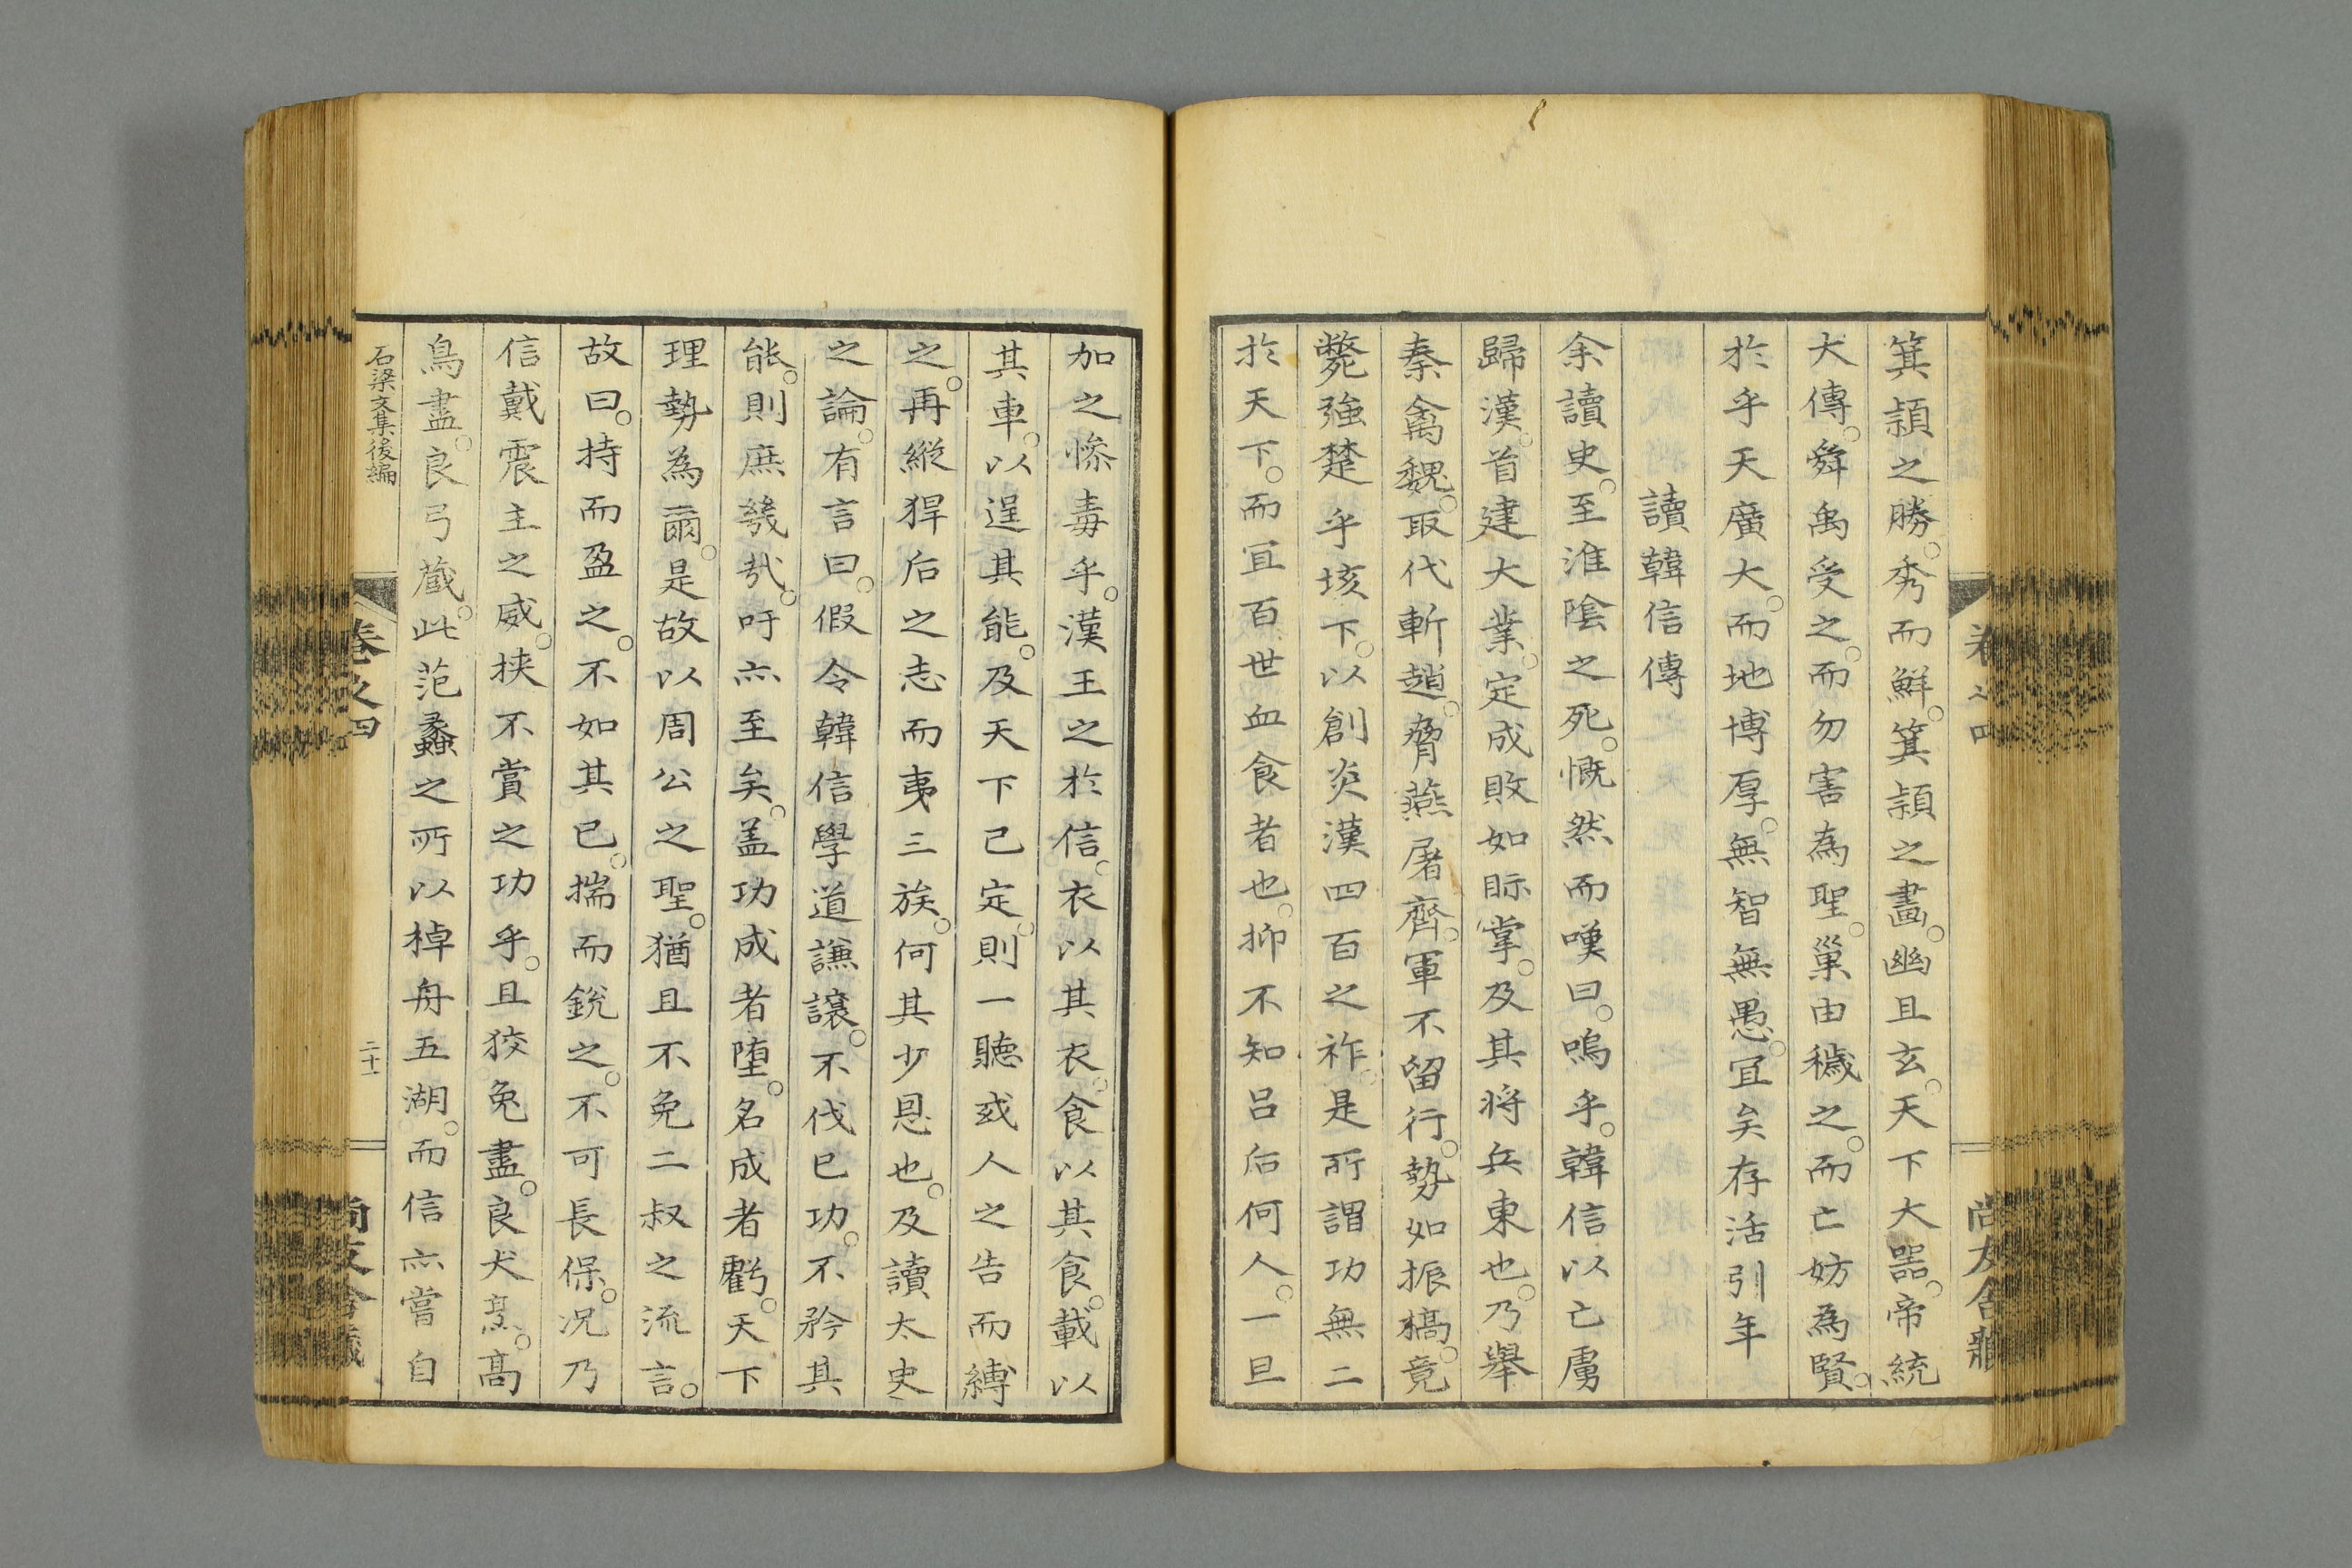 箕潁之勝。秀而鮮。箕潁之畵。幽且玄。天下大器。帝統
大傳。舜禹受之。而勿害為聖。巢由穢之。而亡妨為賢。
於乎天廣大。而地博厚。無智無愚。宜矣存活引年
讀韓信傳
余讀史。至淮陰之死。慨然而嘆曰。嗚乎。韓信以亡虜
歸漢。首建大業。定成敗如眎掌。及其将兵東也。乃舉
秦禽魏。取代斬趙。脅燕屠齊。軍不留行。勢如振槁。竟
斃強楚乎垓下。以創炎漢四百之祚。是所謂功無二
於天下。而宜百世血食者也。抑不知呂后何人。一旦
卷之四
尚友舎藏
加之慘毒乎。漢王之於信。衣以其衣。食以其食。載以
其車。以逞其能。及天下已定。則一聽或人之告而縛
之。再縱猂后之志而夷三族。何其少恩也。及讀太史
之論。有言曰。假令韓信學道謙讓。不伐已功。不矜其
能。則庶幾哉。吁亦至矣。盖功成者堕。名成者虧。天下
理勢為爾。是故以周公之聖。猶且不免二叔之流言。
故曰。持而盈之。不如其已。揣而銳之。不可長保。况乃
信戴震主之威。挟不賞之功乎。且狡兔盡。良犬烹。高
鳥盡。良弓藏。此范蠡之所以棹舟五湖。而信亦嘗自
石梁文集後編
卷之四
二十一
尚友舎藏